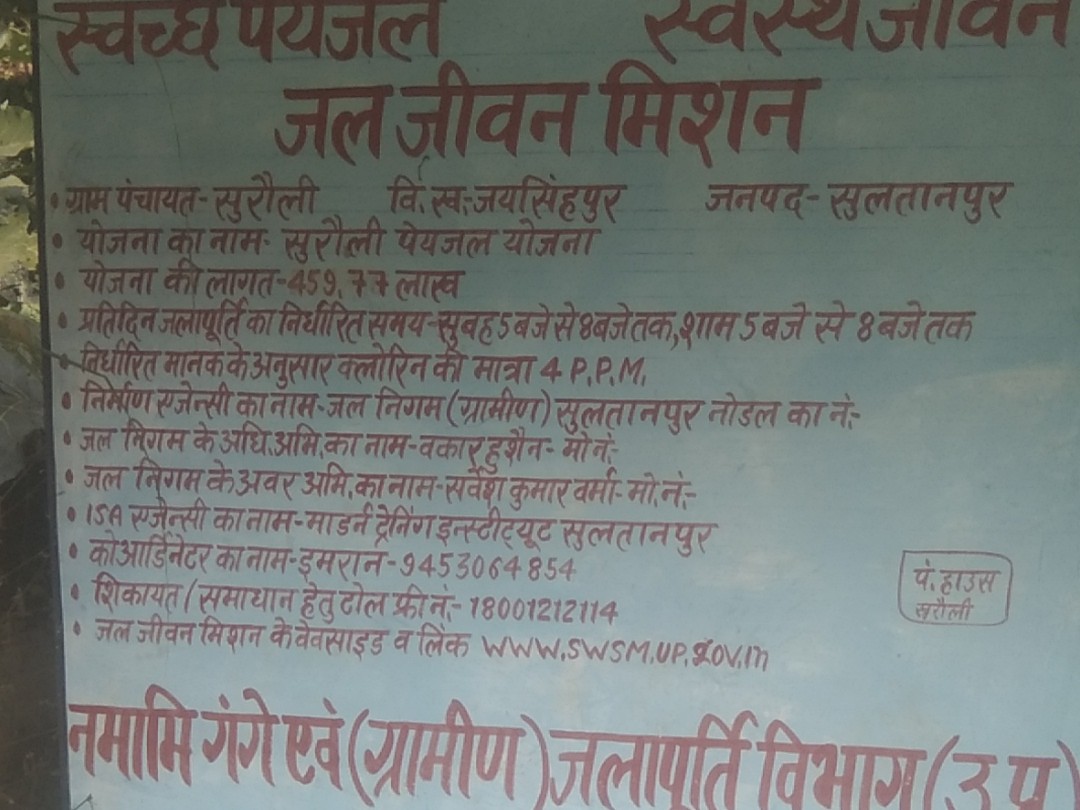 स्वच्छ पेयजल स्वस्थ जीवन
जल जीवन मिशन
• ग्राम पंचायत- सुरौली वि. ख.- जयसिंहपुर जनपद- सुलतानपुर
• योजना का नाम- सुरौली पेयजल योजना
• योजना की लागत-459.77 लाख
• प्रतिदिन जलापूर्ति का निर्धारित समय-सुबह 5 बजे से 8 बजे तक, शाम 5 बजे से 8 बजे तक
• निर्धारित मानक के अनुसार क्लोरिन की मात्रा 4 P.P.M.
• निर्माण एजेन्सी का नाम-जल निगम (ग्रामीण) सुलतानपुर नोडल का नं:-
• जल निगम के अधि.अभि.का नाम-वकार हुशैन- मो नं:-
• जल निगम के अवर अभि.का नाम-सर्वेश कुमार वर्मा- मो.नं:-
• ISA एजेन्सी का नाम-माडर्न ट्रेनिंग इन्स्टीट्यूट सुलतानपुर
• कोआर्डिनेटर का नाम-इमरान-9453064854
• शिकायत/समाधान हेतु टोल फ्री नं:- 18001212114
• जल जीवन मिशन के वेवसाइड व लिंक WWW.SWSM.UP.GOV.in
पं. हाउस
सुरौली
नमामि गंगे एवं (ग्रामीण) जलापूर्ति विभाग (उ प्र)